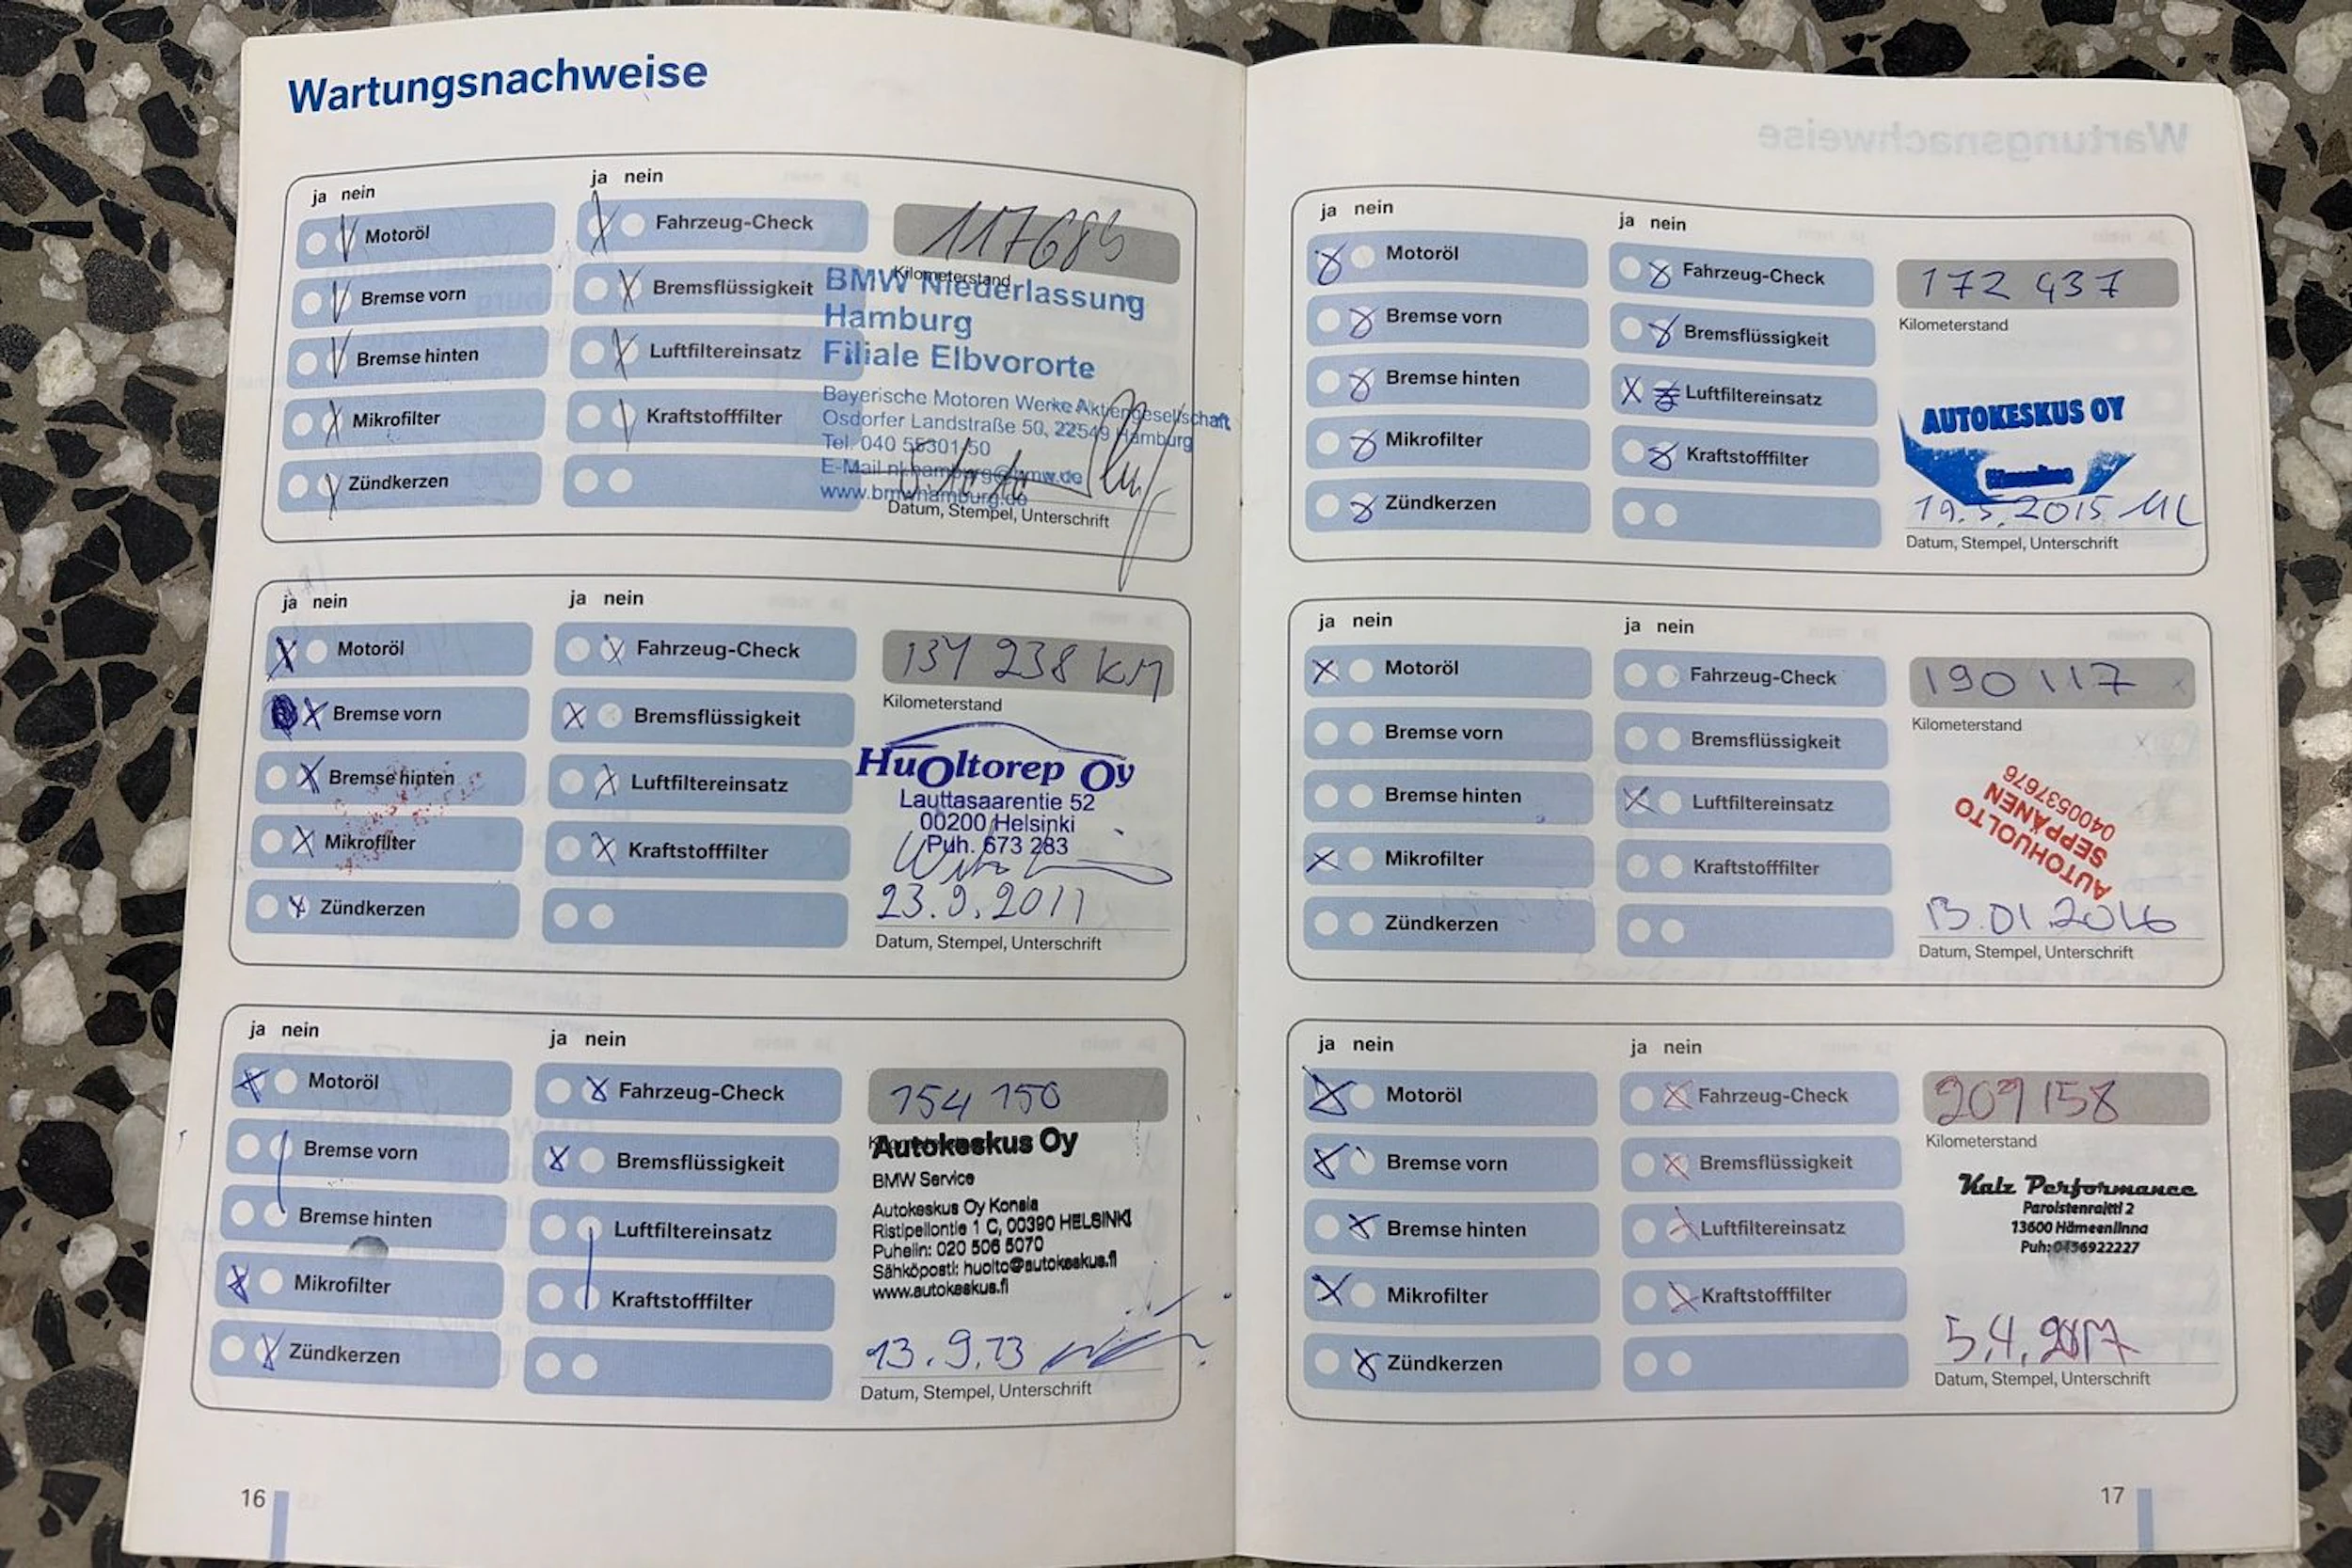 Wartungsnachweise
ja nein
Motoröl
Bremse vorn
Bremse hinten
Mikrofilter
Zündkerzen
ja nein
Fahrzeug-Check
Bremsflüssigkeit
Luftfiltereinsatz
Kraftstofffilter
Kilometerstand
BMW Niederlassung
Hamburg
Filiale Elbvororte
Bayerische Motoren Werke Aktiengesellschaft
Osdorfer Landstraße 50, 22549 Hamburg
Tel. 040 55301/50
E-Mail nl.hamburg@bmw.de
www.bmwhamburg.de
Datum, Stempel, Unterschrift
ja nein
Motoröl
Bremse vorn
Bremse hinten
Mikrofilter
Zündkerzen
ja nein
Fahrzeug-Check
Bremsflüssigkeit
Luftfiltereinsatz
Kraftstofffilter
238 KM
Kilometerstand
HuOltorep Oy
Lauttasaarentie 52
00200 Helsinki
Puh. 673 283
23.9.2011
Datum, Stempel, Unterschrift
ja nein
Motoröl
Bremse vorn
Bremse hinten
Mikrofilter
Zündkerzen
ja nein
Fahrzeug-Check
Bremsflüssigkeit
Luftfiltereinsatz
Kraftstofffilter
154 150
Autokeskus Oy
BMW Service
Autokeskus Oy Konala
Ristipellontie 1 C, 00390 HELSINKI
Puhelin: 020 506 5070
Sähköposti: huolto@autokeskus.fi
www.autokeskus.fi
13.9.13
Datum, Stempel, Unterschrift
16
ja nein
Motoröl
Bremse vorn
Bremse hinten
Mikrofilter
Zündkerzen
ja nein
Fahrzeug-Check
Bremsflüssigkeit
Luftfiltereinsatz
Kraftstofffilter
172 437
Kilometerstand
AUTOKESKUS OY
19.5.2015 ML
Datum, Stempel, Unterschrift
ja nein
Motoröl
Bremse vorn
Bremse hinten
Mikrofilter
Zündkerzen
ja nein
Fahrzeug-Check
Bremsflüssigkeit
Luftfiltereinsatz
Kraftstofffilter
190 117
Kilometerstand
AUTOHUOLTO
SEPPÄNEN
0400537676
13.01.2016
Datum, Stempel, Unterschrift
ja nein
Motoröl
Bremse vorn
Bremse hinten
Mikrofilter
Zündkerzen
ja nein
Fahrzeug-Check
Bremsflüssigkeit
Luftfiltereinsatz
Kraftstofffilter
209 158
Kilometerstand
Kalz Performance
Paroistenraitti 2
13600 Hämeenlinna
Puh:
5.4.2017
Datum, Stempel, Unterschrift
17